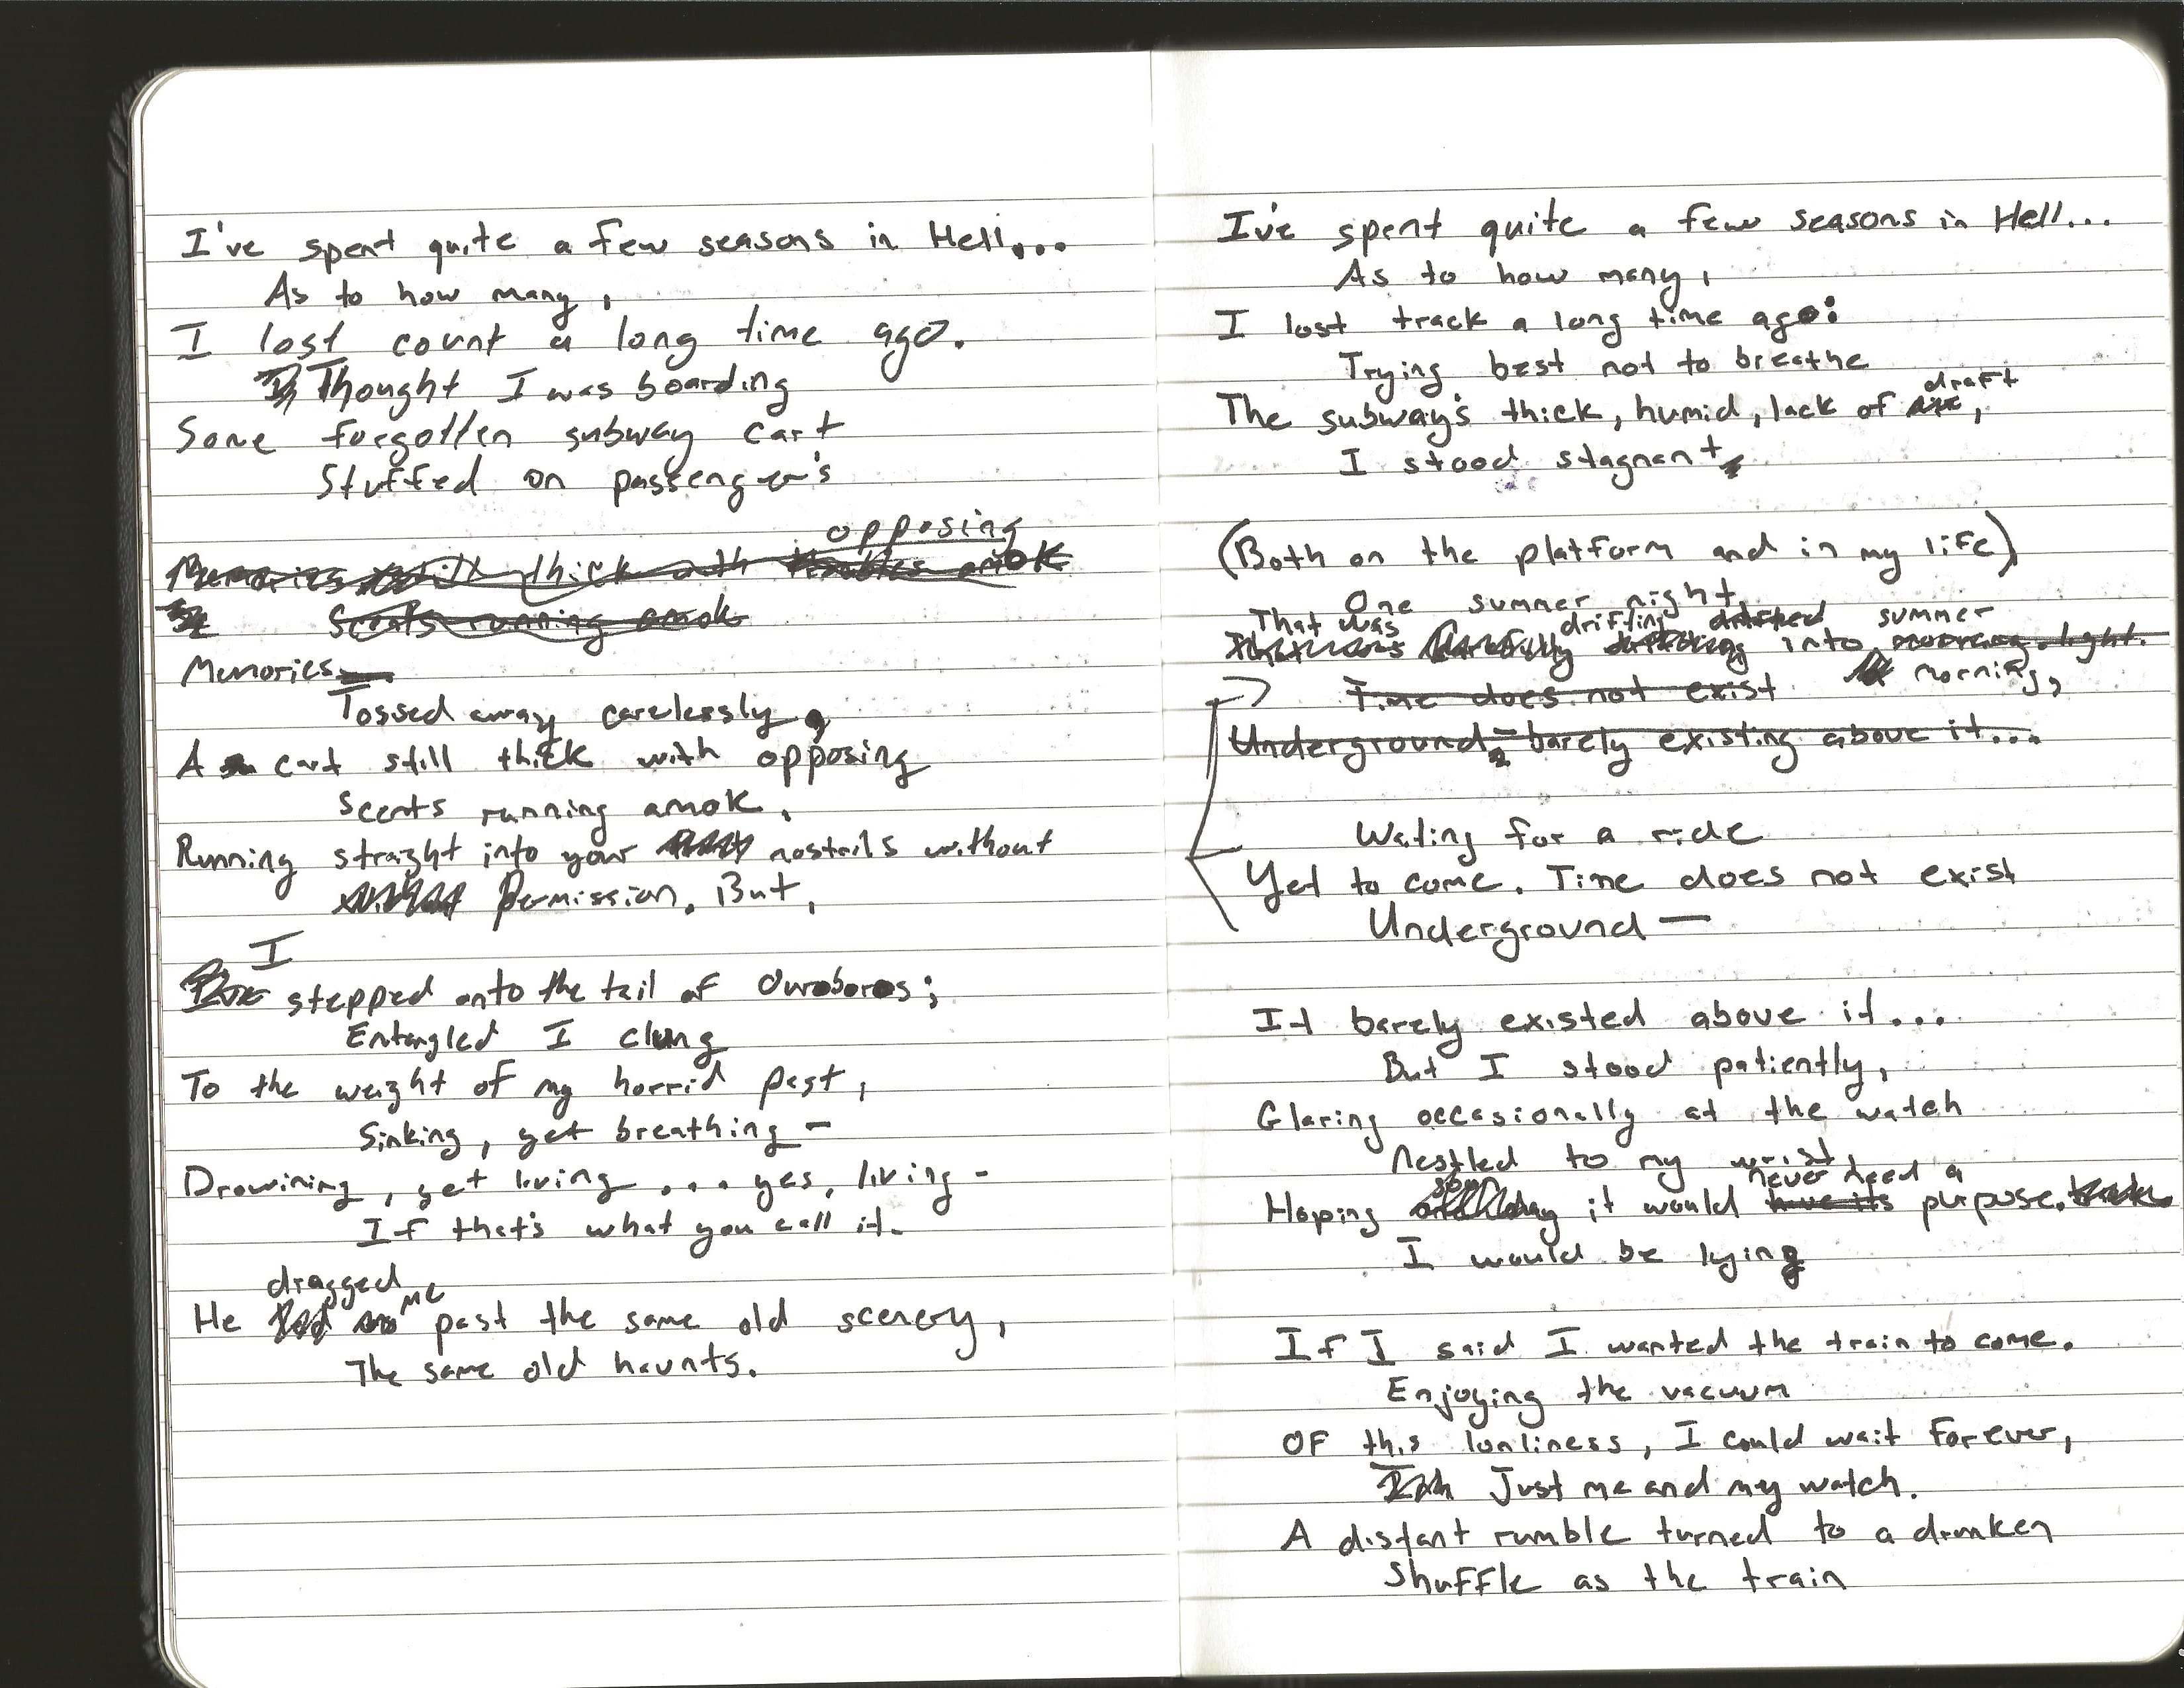 I've spent quite a few seasons in Hell...
As to how many,
I lost count a long time ago.
Thought I was boarding
Some forgotten subway cart
Stuffed on passenger's
opposing
Memories still thick with amok
Scents running amok
Memories
Tossed away carelessly,
A cart still thick with opposing
Scents running amok,
Running straight into your nostrils without
Permission. But,
I
stepped onto the tail of Ouroboros;
Entangled I clung
To the weight of my horrid past,
Sinking, yet breathing –
Drowining, yet living ... yes, living –
If that's what you call it.
dragged
He me past the same old scenery,
The same old haunts.
I've spent quite a few seasons in Hell...
As to how many,
I lost track a long time ago:
Trying best not to breathe
draft
The subway's thick, humid, lack of air,
I stood stagnant
(Both on the platform and in my life)
One summer night
That was drifting drifted summer
into morning light.
Time does not exist morning,
Underground, barely existing above it...
Wating for a ride
Yet to come. Time does not exist
Underground —
It barely existed above it...
But I stood patiently,
Glaring occasionally at the watch
Nestled to my wrist,
some never need a
Hoping day it would have its purpose.
I would be lying
If I said I wanted the train to come.
Enjoying the vacuum
Of this lonliness, I could wait forever,
Just me and my watch.
A distant rumble turned to a drunken
Shuffle as the train